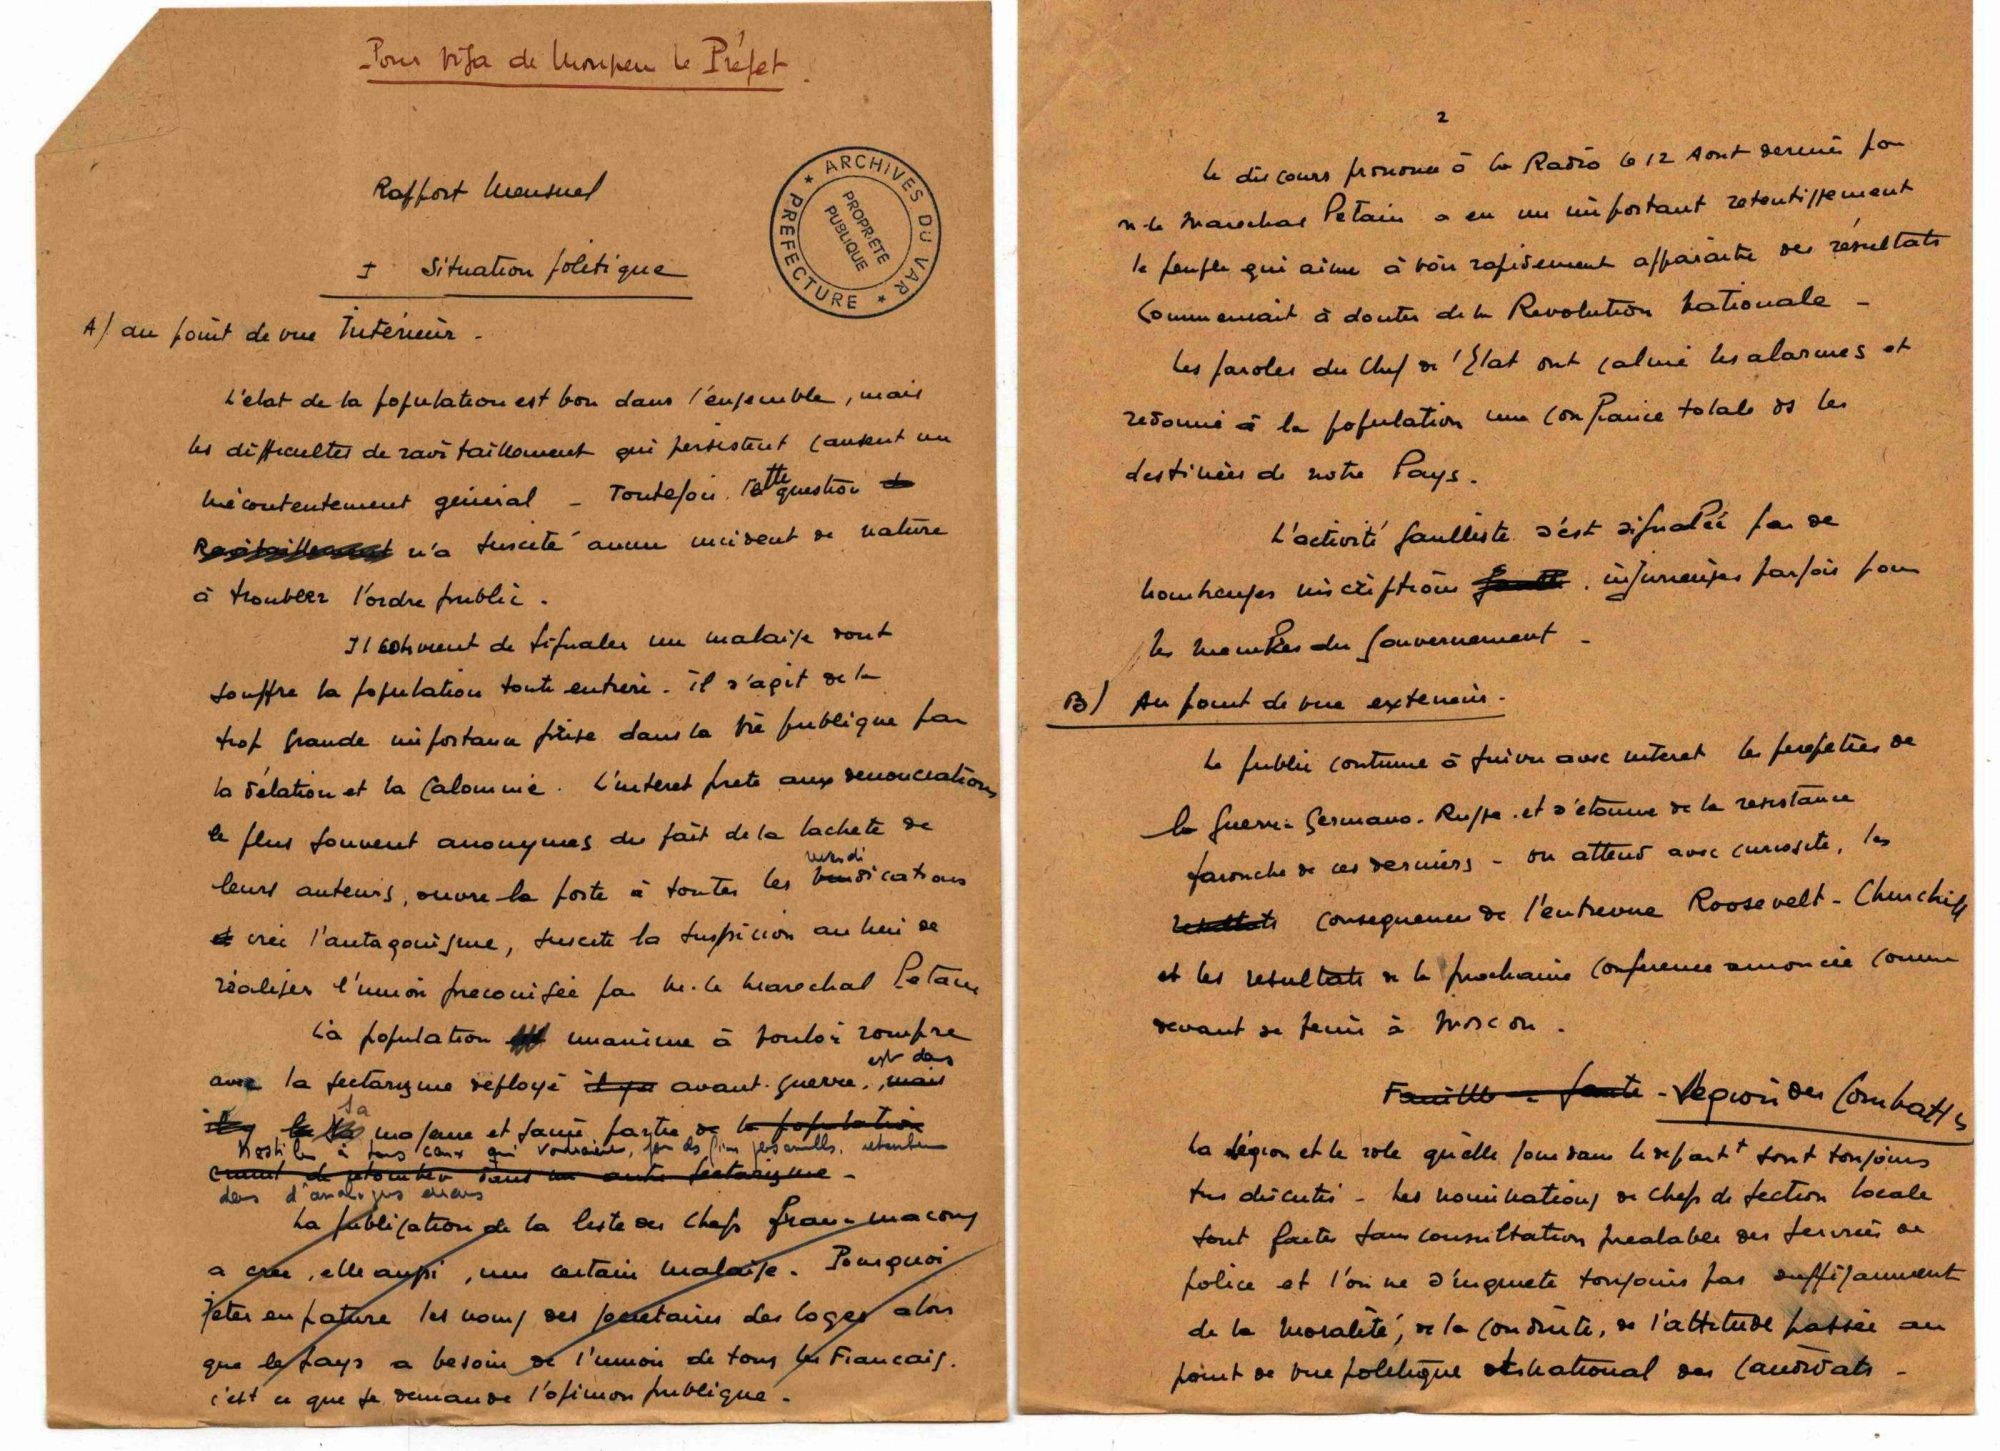 Pour visa de Monsieur le Préfet
Rapport Mensuel
ARCHIVES DU VAR
★ PRÉFECTURE ★
PROPRIÉTÉ
PUBLIQUE
I Situation politique
A/ au point de vue Intérieur -
L'état de la population est bon dans l'ensemble, mais
les difficultés de ravitaillement qui persistent causent un
mécontentement général - Toutefois cette question de
Ravitaillement n'a suscité aucun incident de nature
à troubler l'ordre public.
Il convient de signaler un malaise dont
souffre la population toute entière. il s'agit de la
trop grande importance prise dans la vie publique par
la délation et la calomnie. L'intérêt prêté aux dénonciations
le plus souvent anonymes du fait de la lacheté de
leurs auteurs, ouvre la porte à toutes les vindications
et crée l'antagonisme, suscite la suspicion au lieu de
réaliser l'union préconisée par M. le Maréchal Pétain
La population unanime à vouloir rompre
avec la sectarisme déployé il y a avant-guerre, mais est dans
sa majeure et saine partie de la population
hostile à tous ceux qui voudraient, pour des fins personnelles, retomber
craint de retomber dans un autre sectarisme -
dans d'analogues erreurs
La publication de la liste des Chefs franc-maçons
a créé, elle aussi, un certain malaise. Pourquoi
jeter en pature les noms des secrétaires des loges alors
que le pays a besoin de l'union de tous les Francais.
c'est ce que se demande l'opinion publique -
2
Le discours prononcé à la Radio le 12 Aout dernier par
M. le Maréchal Pétain a eu un important retentissement
le peuple qui aime à voir rapidement apparaitre des résultats
Commencait à douter de la Revolution Nationale -
Les paroles du Chef de l'Etat ont calmé les alarmes et
redonné à la population une confiance totale ds les
destinées de notre Pays.
L'activité gaulliste s'est signalée par de
nombreuses inscriptions injurieuses parfois pour
les membres du Gouvernement -
B) Au point de vue exterieur -
Le public continue à suivre avec interet les peripeties de
la Guerre Germano-Russe et s'étonne de la resistance
farouche de ces derniers - on attend avec curiosité, les
resultats consequences de l'entrevue Roosevelt - Churchill
et les resultats de la prochaine Conference annoncée comme
devant se tenir à Moscou.
Famille - Santé - Légion des Combatts
La légion et le role qu'elle joue dans le depart^t sont toujours
tres discutés - Les nominations de Chefs de section locale
sont faites sans consultation prealable des services de
police et l'on ne s'inquiete toujours pas suffisamment
de la moralité, de la conduite, de l'attitude passée au
point de vue politique et national des candidats -